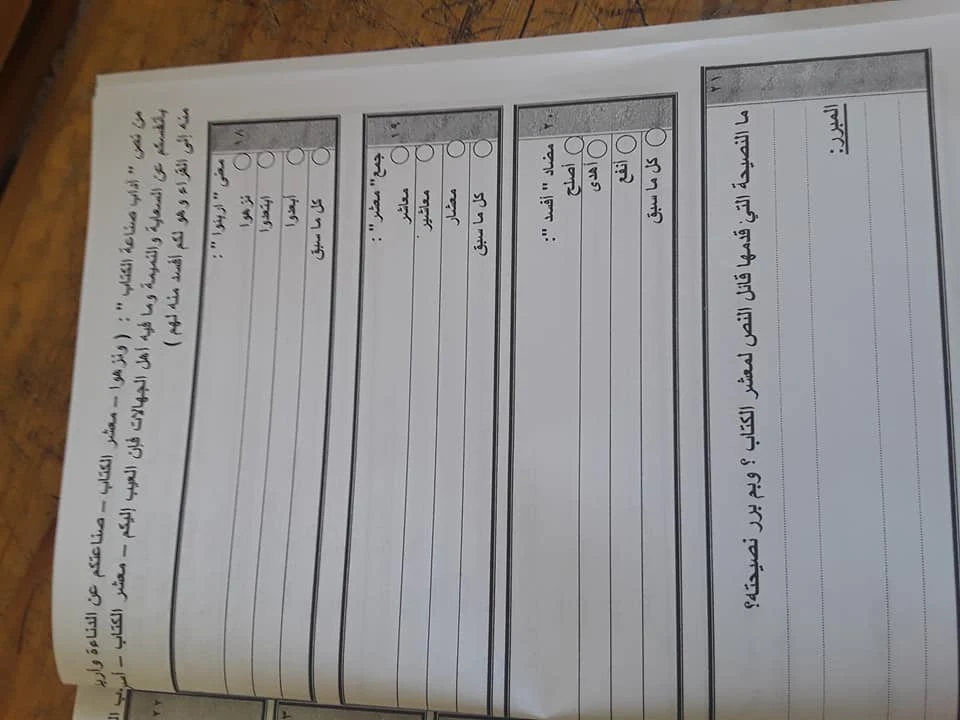 من نص " آداب صناعة الكتاب " : ( ونزهوا – معشر الكتاب – صناعتكم عن الدناءة واربئوا
بأنفسكم عن السعاية والنميمة وما فيه أهل الجهالات فإن العيب إليكم – معشر الكتاب – أسرع
منه إلى الفراء وهو لكم أفسد منه لهم )
١٨
معنى " اربئوا " :
نزهوا
ابتعدوا
ابعدوا
كل ما سبق
١٩
جمع " معشر " :
معاشر
معاشير
معشار
كل ما سبق
٢٠
مضاد " أفسد " :
أصلح
أهدى
أنفع
كل ما سبق
٢١
ما النصيحة التي قدمها قائل النص لمعشر الكتاب ؟ وبم برر نصيحته؟
المبرر:
٢٢